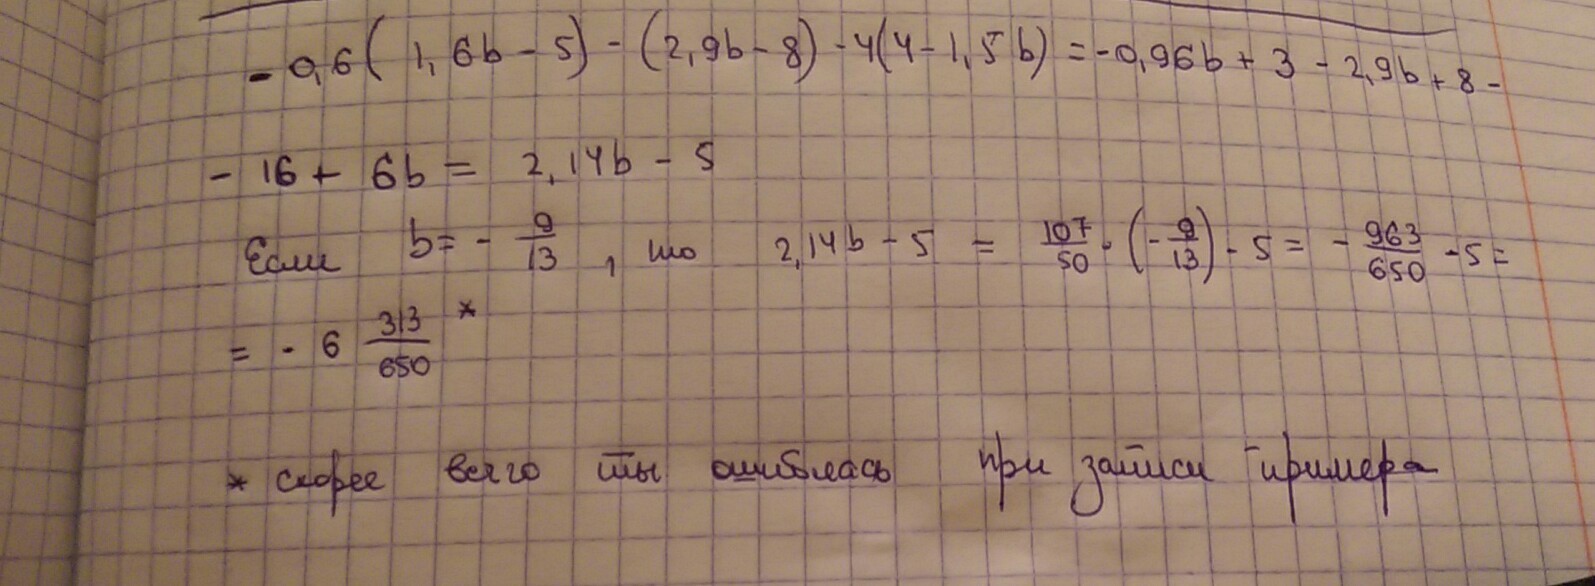 - 0,6( 1,6b - 5) - (2,9b - 8) - 4(4 - 1,5b) = -0,96b + 3 - 2,9b + 8 -
- 16 + 6b = 2,14b - 5
Если b = - 9/13 , то 2,14b - 5 = 107/50 · (- 9/13) - 5 = - 963/650 - 5 =
= - 6 313/650 *
* скорее всего ты ошиблась при записи примера